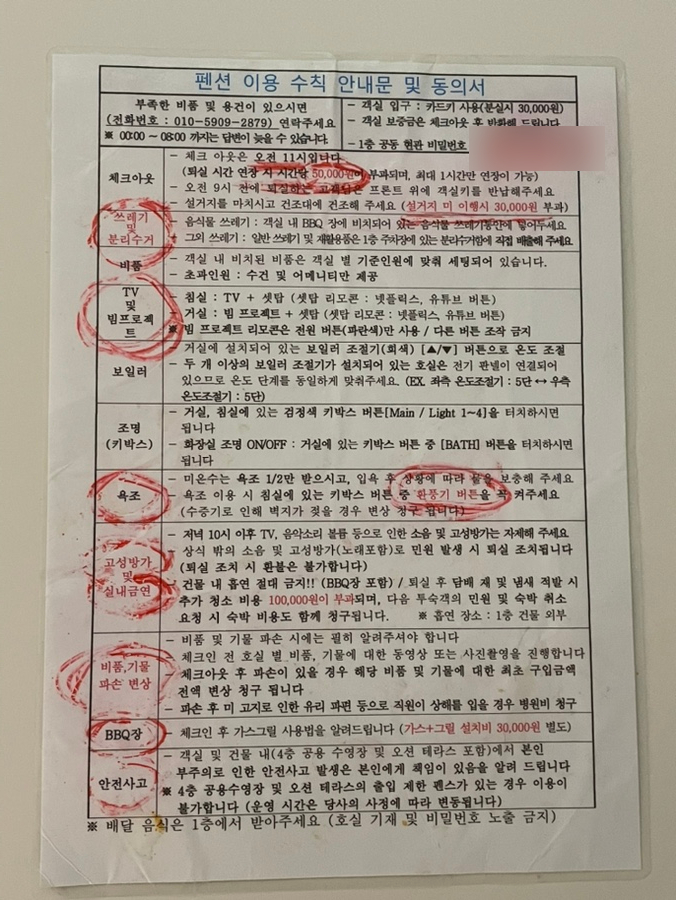 펜션 이용 수칙 안내문 및 동의서
부족한 비품 및 용건이 있으시면
(전화번호 : 010-5909-2879) 연락주세요
※ 00:00 ~ 08:00 까지는 답변이 늦을 수 있습니다.
- 객실 입구 : 카드키 사용(분실시 30,000원)
- 객실 보증금은 체크아웃 후 반환해 드립니다.
- 1층 공동 현관 비밀번호
체크아웃
- 체크 아웃은 오전 11시입니다
(퇴실 시간 연장 시 시간당 50,000원이 부과되며, 최대 1시간만 연장이 가능)
- 오전 9시 전에 퇴실하는 고객님은 프론트 위에 객실키를 반납해주세요
- 설거지를 마치시고 건조대에 건조해 주세요 (설거지 미 이행시 30,000원 부과)
쓰레기
및
분리수거
- 음식물 쓰레기 : 객실 내 BBQ 장에 비치되어 있는 음식물 쓰레기통안에 넣어두세요
- 그외 쓰레기 : 일반 쓰레기 및 재활용품은 1층 주차장에 있는 분리수거함에 직접 배출해 주세요
비품
- 객실 내 비치된 비품은 객실 별 기준인원에 맞춰 세팅되어 있습니다.
- 초과인원 : 수건 및 어메니티만 제공
TV
및
빔프로젝
트
- 침실 : TV + 셋탑 (셋탑 리모콘 : 넷플릭스, 유튜브 버튼)
- 거실 : 빔 프로젝트 + 셋탑 (셋탑 리모콘 : 넷플릭스, 유튜브 버튼)
※ 빔 프로젝트 리모콘은 전원 버튼(파란색)만 사용 / 다른 버튼 조작 금지
보일러
- 거실에 설치되어 있는 보일러 조절기(회색) [▲/▼] 버튼으로 온도 조절
- 두 개 이상의 보일러 조절기가 설치되어 있는 호실은 전기 판넬이 연결되어
있으므로 온도 단계를 동일하게 맞춰주세요. (EX. 좌측 온도조절기 : 5단 ↔ 우측
온도조절기 : 5단)
조명
(키박스)
- 거실, 침실에 있는 검정색 키박스 버튼[Main / Light 1~4]을 터치하시면
됩니다
- 화장실 조명 ON/OFF : 거실에 있는 키박스 버튼 중 [BATH] 버튼을 터치하시면
됩니다
욕조
- 미온수는 욕조 1/2만 받으시고, 입욕 후 상황에 따라 물을 보충해 주세요
- 욕조 이용 시 침실에 있는 키박스 버튼 중 환풍기 버튼을 꼭 켜주세요
(수증기로 인해 벽지가 젖을 경우 변상 청구 됩니다)
고성방가
및
실내금연
- 저녁 10시 이후 TV, 음악소리 볼륨 등으로 인한 소음 및 고성방가는 자제해 주세요
- 상식 밖의 소음 및 고성방가(노래포함)로 민원 발생 시 퇴실 조치됩니다
(퇴실 조치 시 환불은 불가합니다)
- 건물 내 흡연 절대 금지!! (BBQ장 포함) / 퇴실 후 담배 재 및 냄새 적발 시
추가 청소 비용 100,000원이 부과되며, 다음 투숙객의 민원 및 숙박 취소
요청 시 숙박 비용도 함께 청구됩니다. ※ 흡연 장소 : 1층 건물 외부
비품,기물
파손 변상
- 비품 및 기물 파손 시에는 필히 알려주셔야 합니다
- 체크인 전 호실 별 비품, 기물에 대한 동영상 또는 사진촬영을 진행합니다
- 체크아웃 후 파손이 있을 경우 해당 비품 및 기물에 대한 최초 구입금액
전액 변상 청구 됩니다
- 파손 후 미 고지로 인한 유리 파편 등으로 직원이 상해를 입을 경우 병원비 청구
BBQ장
- 체크인 후 가스그릴 사용법을 알려드립니다 (가스+그릴 설치비 30,000원 별도)
안전사고
- 객실 및 건물 내(4층 공용 수영장 및 오션 테라스 포함)에서 본인
부주의로 인한 안전사고 발생은 본인에게 책임이 있음을 알려 드립니다
※ 4층 공용수영장 및 오션 테라스의 출입 제한 펜스가 있는 경우 이용이
불가합니다 (운영 시간은 당사의 사정에 따라 변동됩니다)
※ 배달 음식은 1층에서 받아주세요 (호실 기재 및 비밀번호 노출 금지)